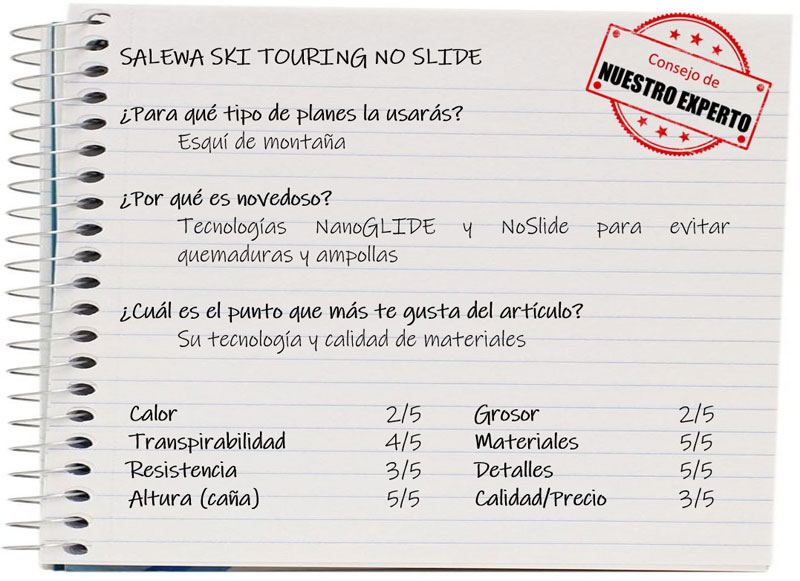 SALEWA SKI TOURING NO SLIDE
Consejo de
NUESTRO EXPERTO
¿Para qué tipo de planes la usarás?
Esquí de montaña
¿Por qué es novedoso?
Tecnologías NanoGLIDE y NoSlide para evitar
quemaduras y ampollas
¿Cuál es el punto que más te gusta del artículo?
Su tecnología y calidad de materiales
Calor 2/5 Grosor 2/5
Transpirabilidad 4/5 Materiales 5/5
Resistencia 3/5 Detalles 5/5
Altura (caña) 5/5 Calidad/Precio 3/5